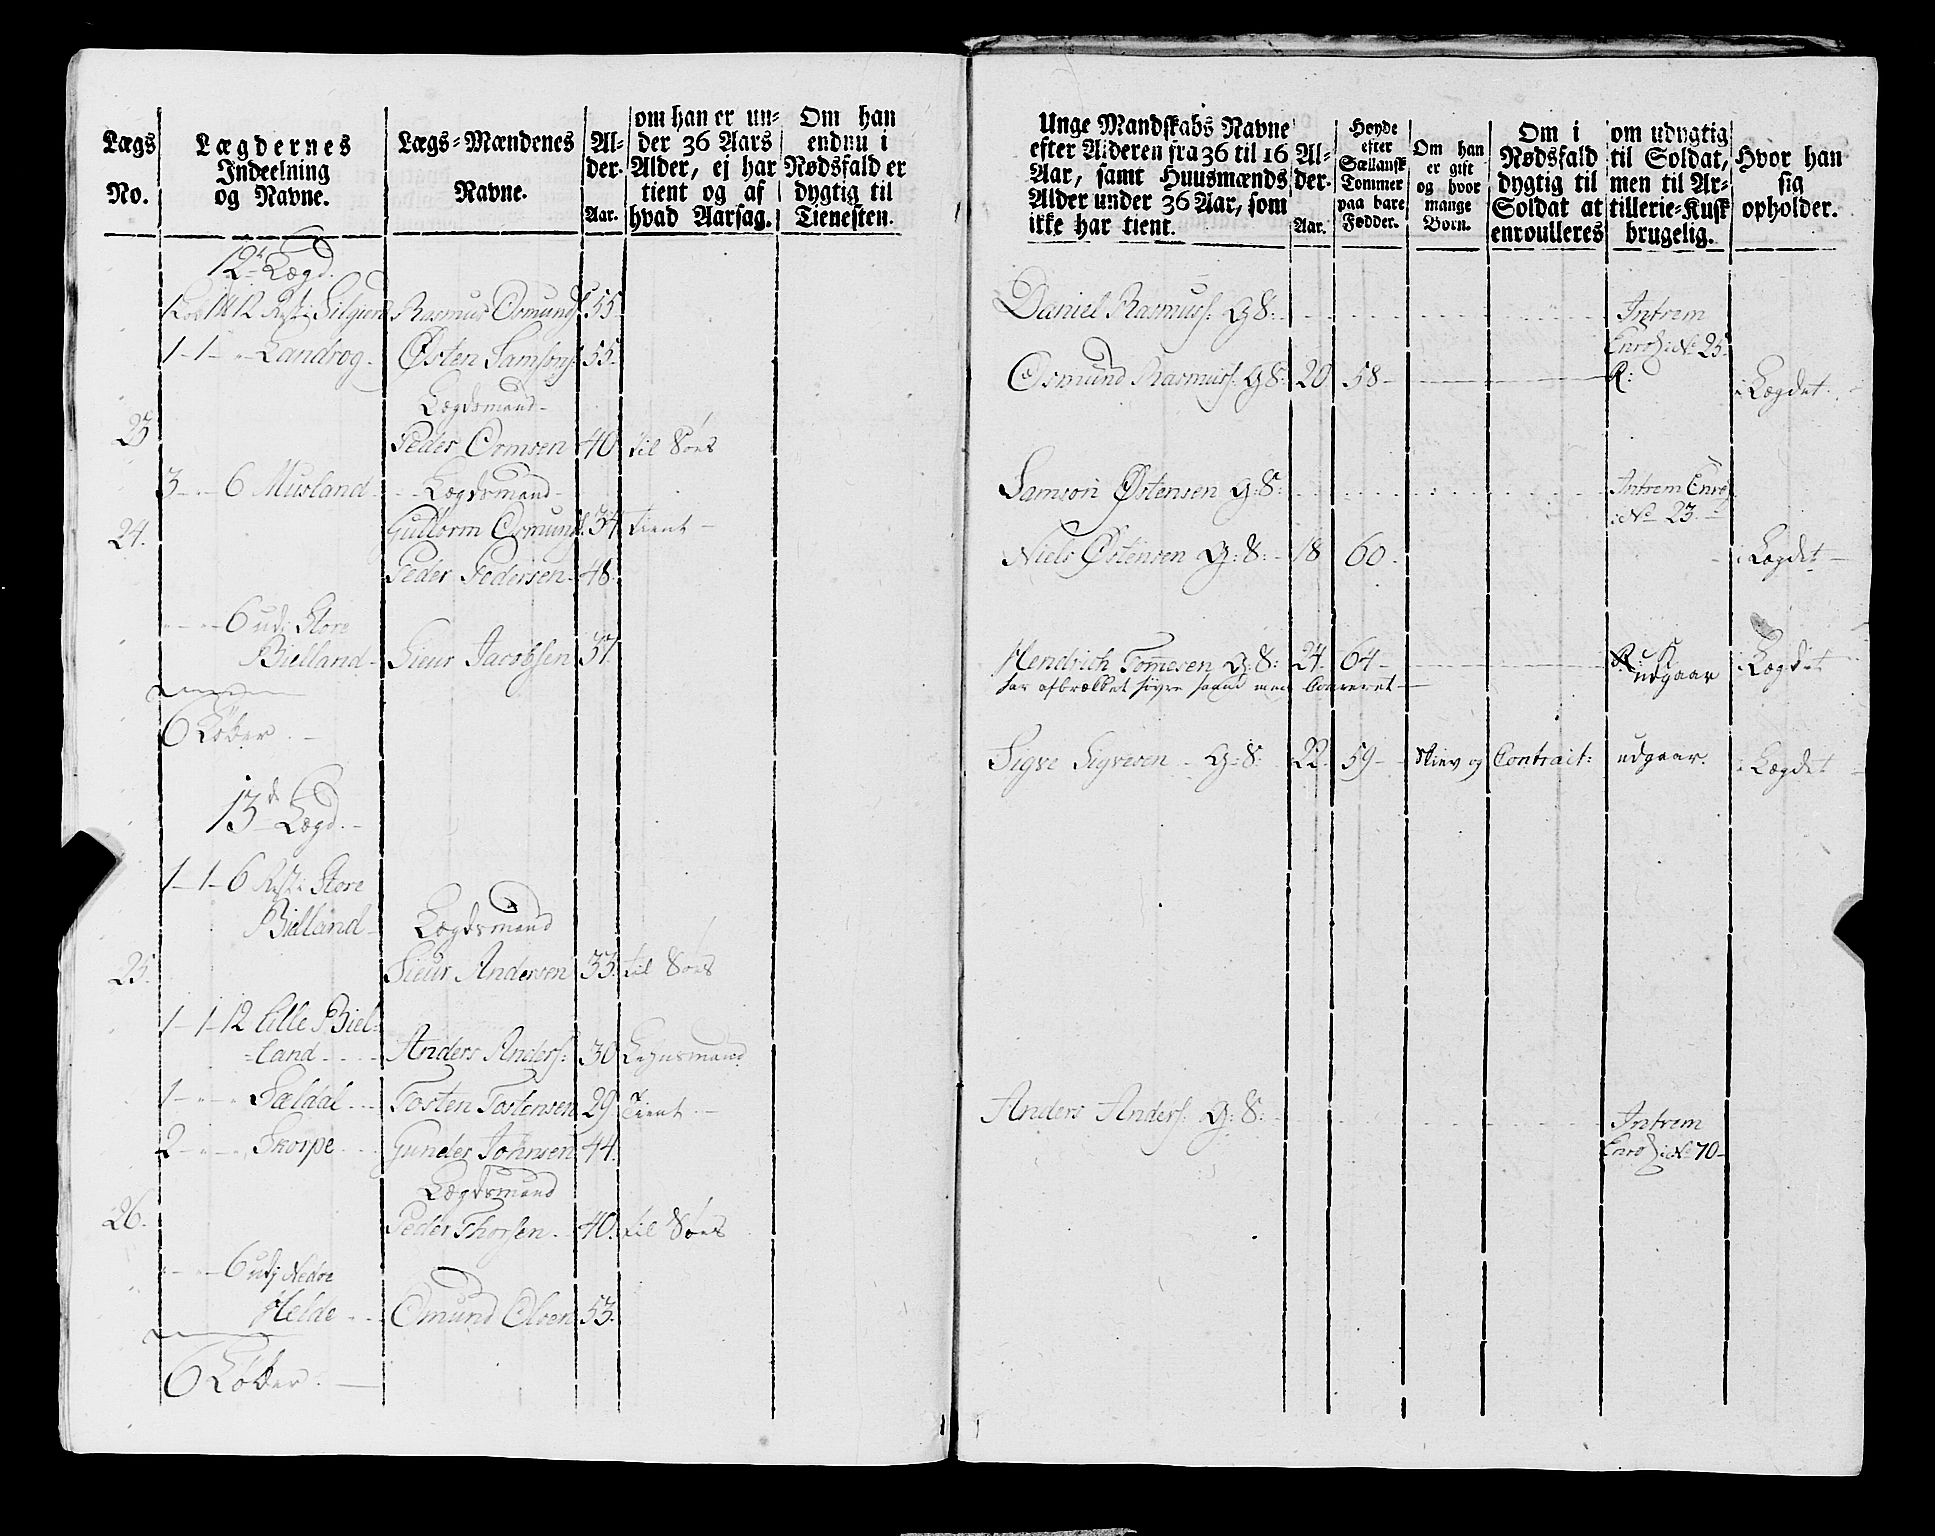 Lægs
No.
Lægdernes
Indeelning
og Navne.
Lægs-Mændenes
Navne.
Al-
der.
Aar.
om han er un-
der 36 Aars
Alder, ej har
tient og af
hvad Aarsag.
Om han
endnu i
Nødsfald er
dygtig til
Tienesten.
12te Lægd.
1 Rest i Siljend Rasmus Osmunds. 55
1-1- - Landrog - Østen Samsons. 55.
Lægdsmand -
23 Peder Ormsen 40 til Søes
3 - - 6 Musland - Lægdsmand -
24. Guttorm Osmunds. 34 Tient -
Peder Pedersen 48
- - 6 udi Store
Bielland - Sieur Jacobsen 37.
6 Løber. -
13de Lægd. -
1-1-6 Rest i Store
Bielland - Lægdsmand
25. Sieur Andersen 33 til Søes
1-1-12 Lille Biel=
=land - - - Anders Anders: 30 Lehnsmand
1 - - - Sældal - - Tosten Tostensen 29 Tient. -
2 - - - Skorpe - - Gunder Johnsen 44.
Lægdsmand
26. Peder Thorsen. 40. til Søes
- - 6 udj Nedre
Helde - - - Omund Olsen 53.
6 Løber. -
Unge Mandskabs Navne
efter Alderen fra 36 til 16
Aar, samt Huusmænds
Alder under 36 Aar, som
ikke har tient.
Al-
der.
Aar.
Høyde
efter
Sællansk
Tommer
paa bare
Fødder.
Om han
er gift
og hvor
mange
Born.
Om i
Nødsfald
dygtig til
Soldat at
enroulleres
om udygtig
til Soldat,
men til Ar-
tillerie-Kusk
brugelig.
Hvor han
sig
opholder.
Daniel Rasmuss. G S: Intrem
Enro i No 25
Osmund Rasmuss. G S: 20 58 - R: i Lægdet.
Samson Østensen G: S: Intrem Enro
i No 23. -
Niels Østensen G: S: - 18 60. - i Lægdet -
Hendrich Tommesen G: S: 24. 64 - R: udgaar i Lægdet
Sigve Sigvesen - G: S: 22. 59 - Skiev og Contrait: udgaar. i Lægdet -
Anders Anders: G: S: Intrem
Enro i No 70 -